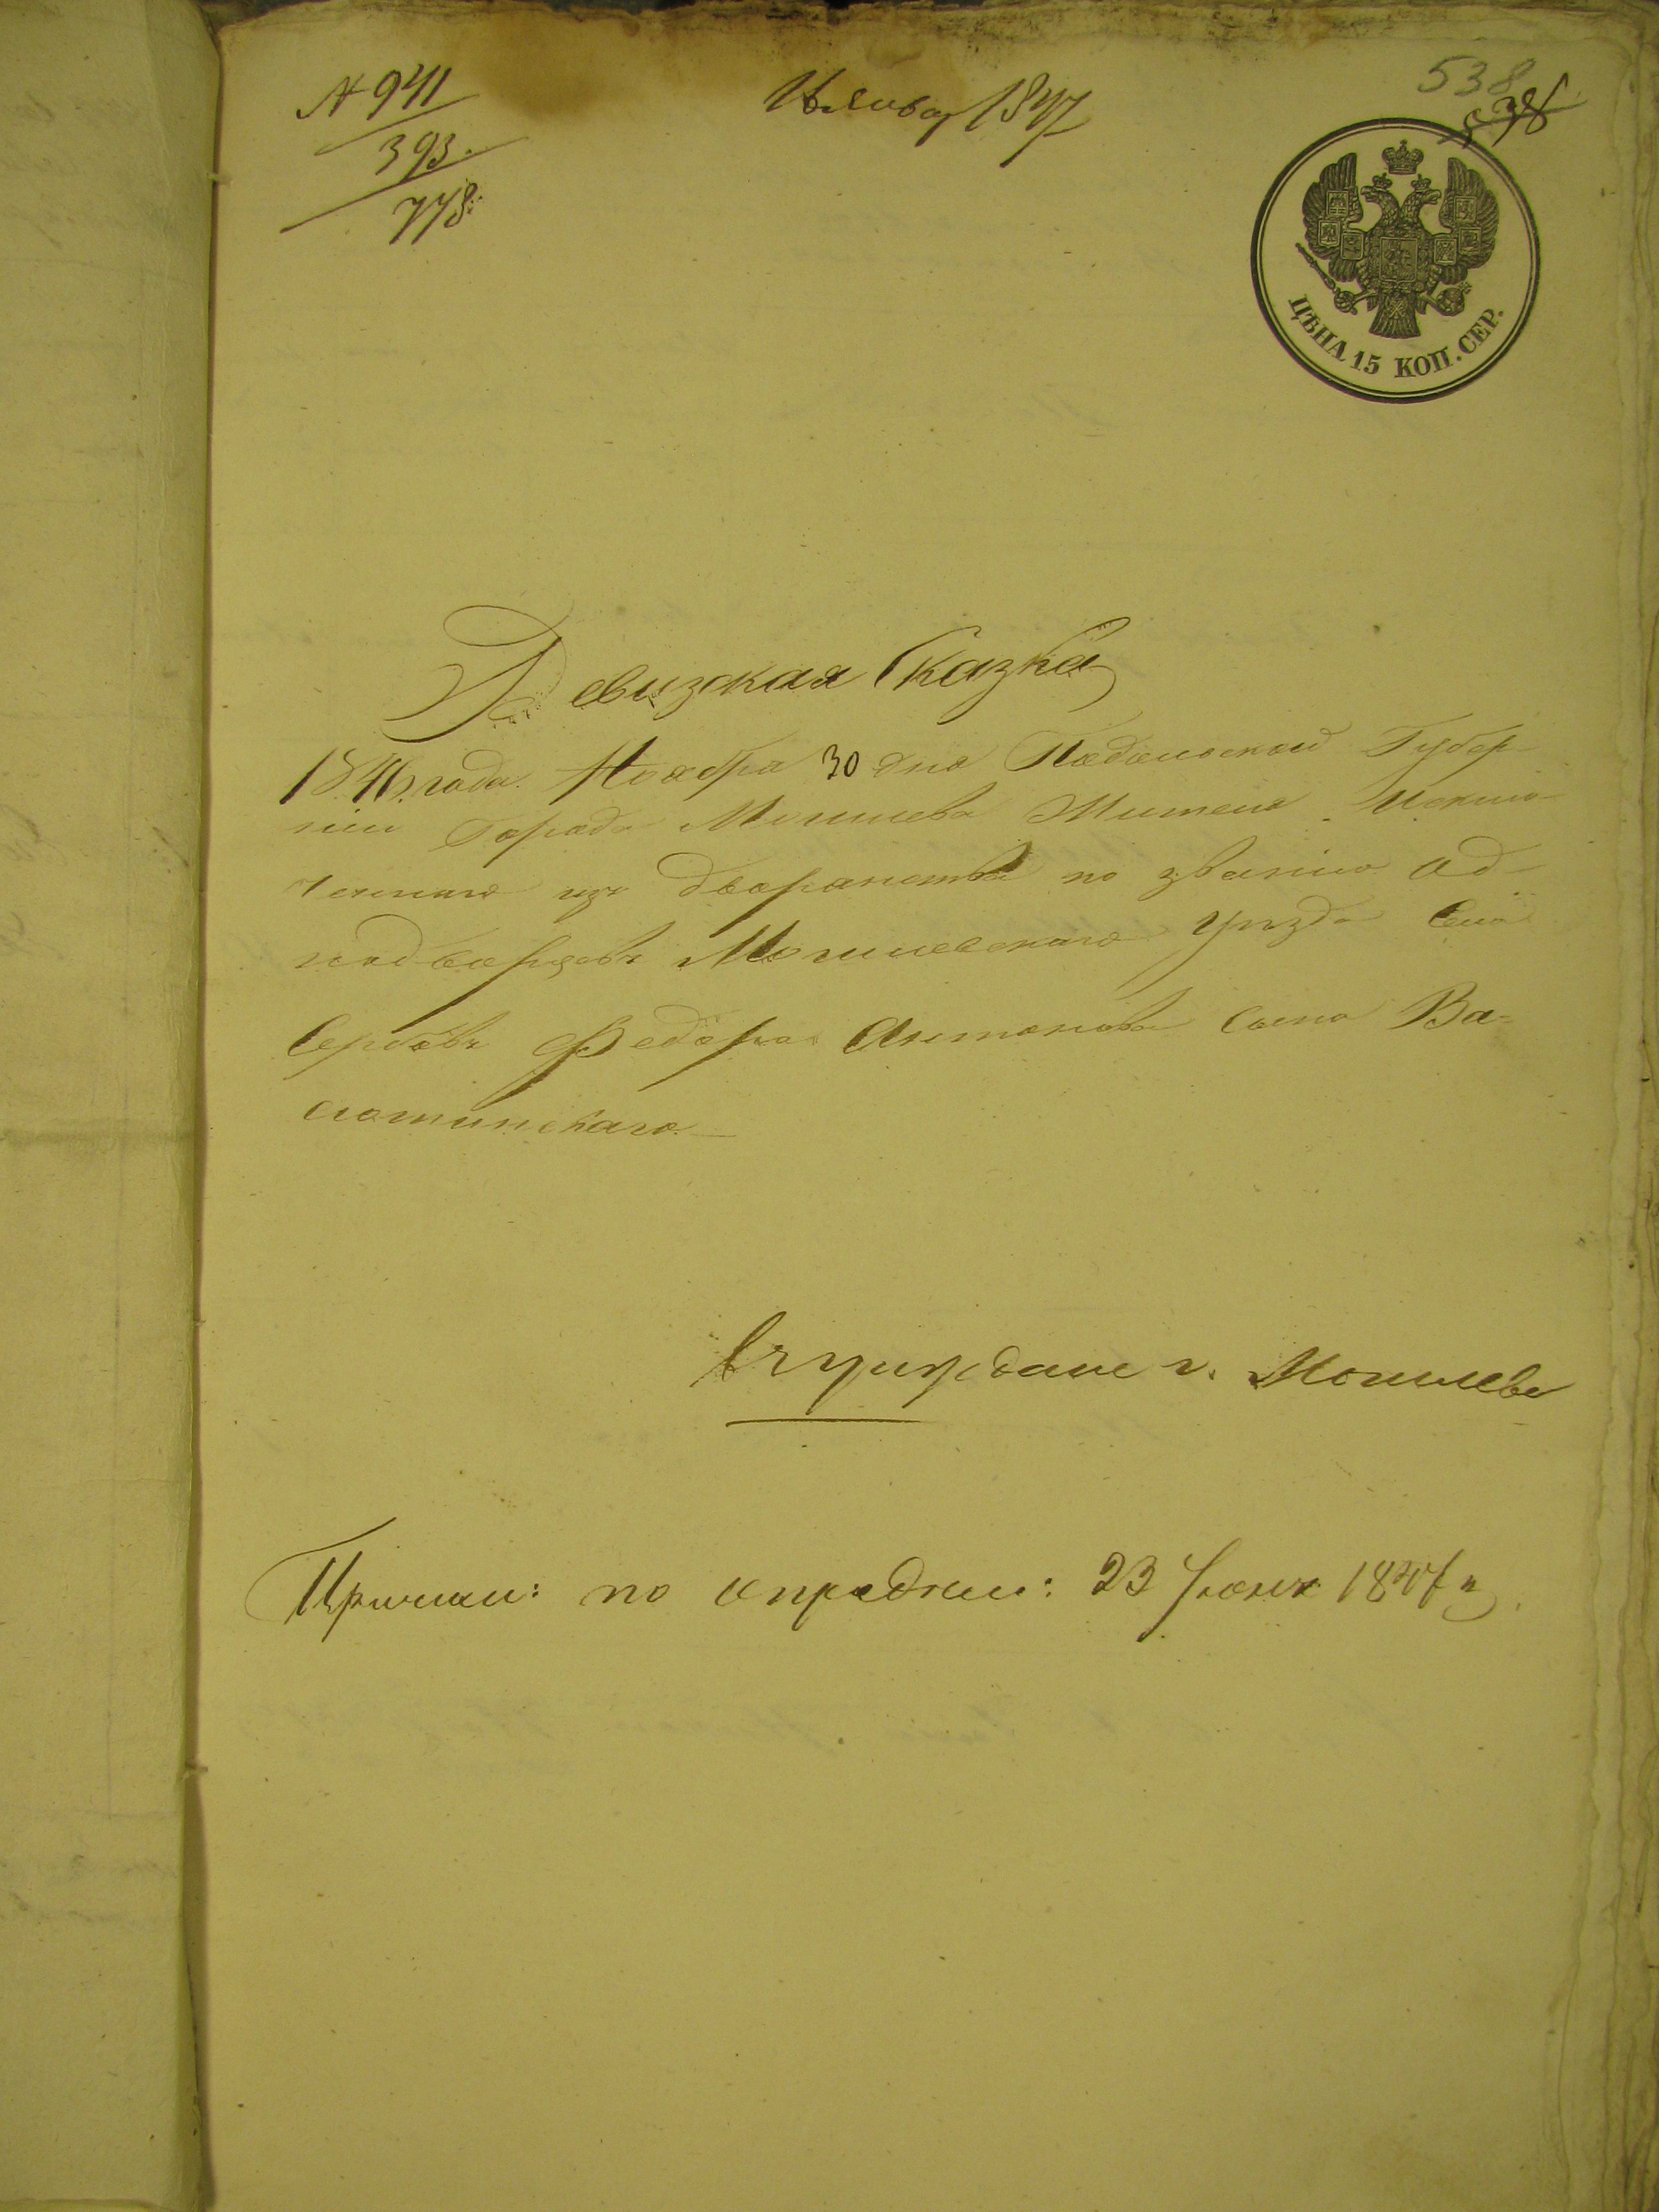 № 941
393.
778
16 январ 1847
538
538
ЦѢНА 15 КОП. СЕР.
Ревизская Сказка
1846 года Ноября 30 дня Подольской Губер-
ніи Города Могилева Жителя Исклю-
ченнаго изъ дворянства по званію од-
нодворцовъ Могилевскаго уѣзда Села
Сербовъ Федора Антонова сына Ва-
слотинскаго
въ граждане г. Могилева
Причис: по опредлен: 23 Іюня 1847 г.